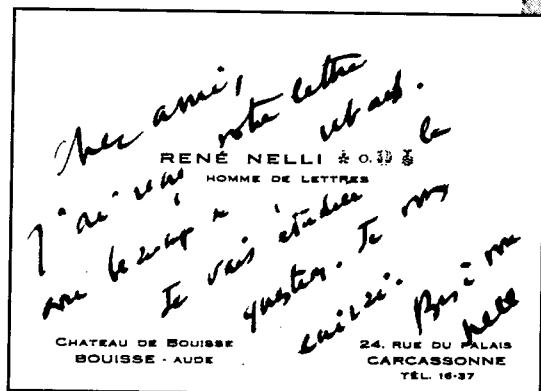 Cher ami,
J'ai reçu votre lettre
avec beaucoup
Je vais étudier la
question. Je vous
écrirai. Bien à vous
Nelli
RENÉ NELLI O.
HOMME DE LETTRES
CHATEAU DE BOUISSE
BOUISSE - AUDE
24, RUE DU PALAIS
CARCASSONNE
TÉL. 16-37